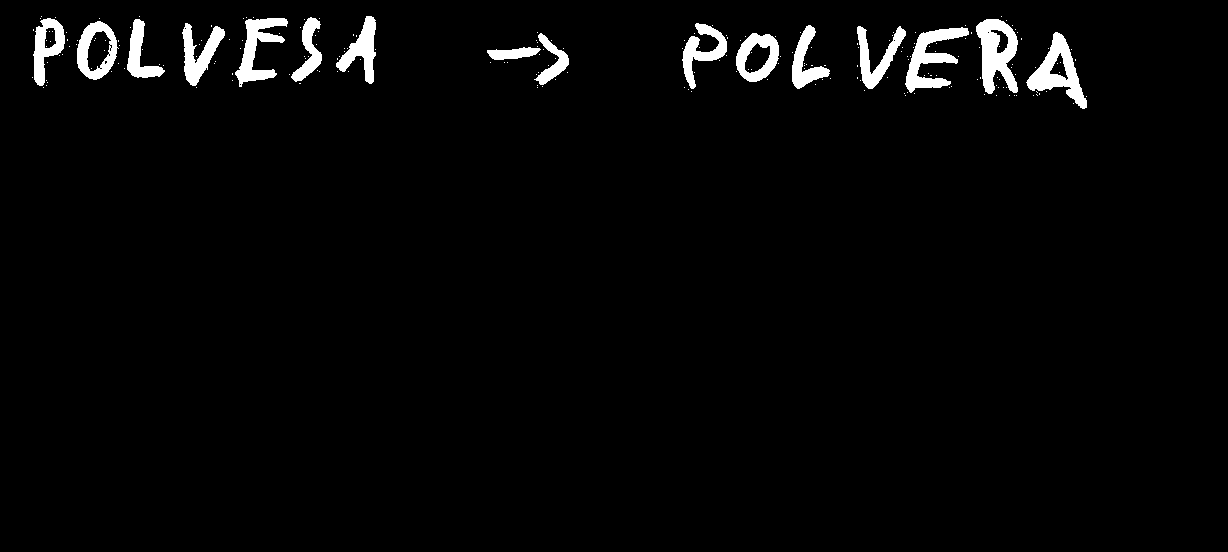 POLVESA → POLVERA